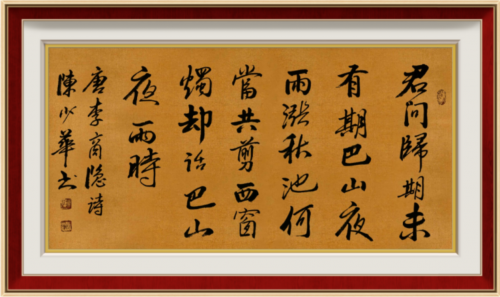 君问歸期未
有期巴山夜
雨涨秋池何
當共剪西窗
燭却话巴山
夜雨時
唐李商隐诗
陳少華书